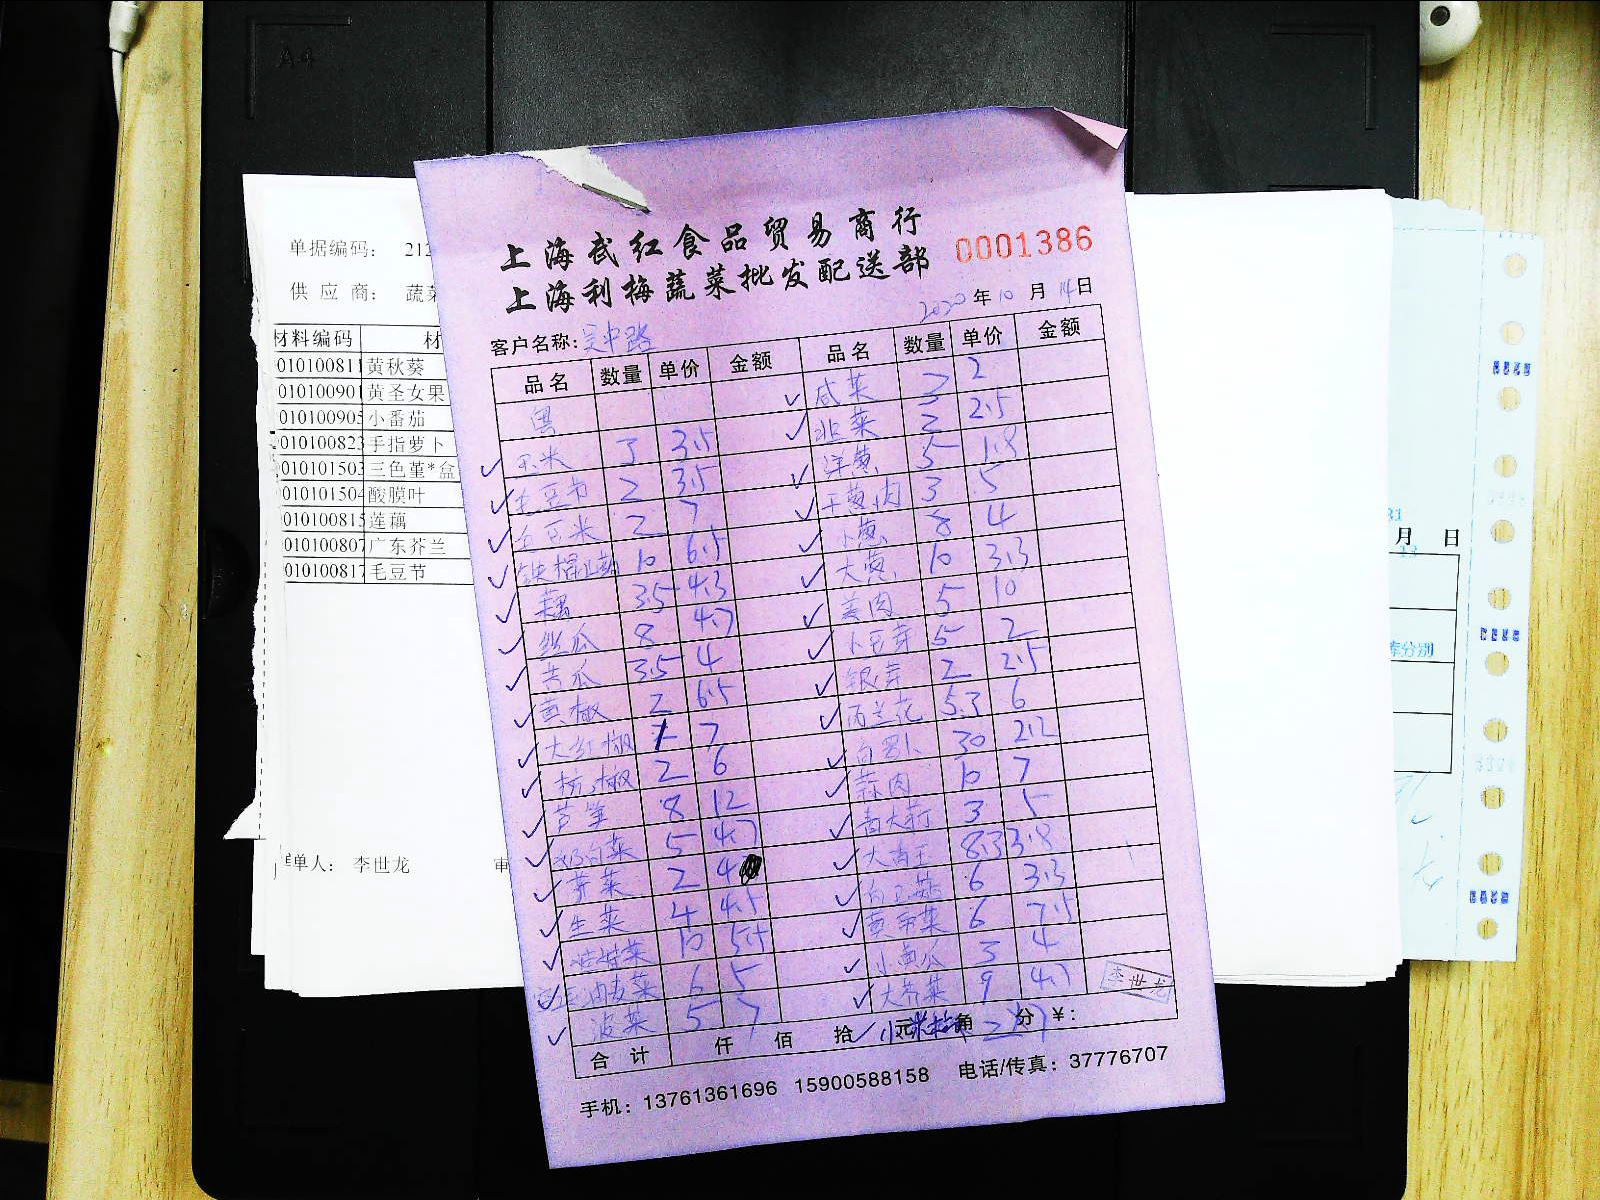 A4
单据编码： 212
供 应 商： 蔬菜
材料编码 材
010100811 黄秋葵
010100901 黄圣女果
010100905 小番茄
010100823 手指萝卜
010101503 三色堇*盒
010101504 酸膜叶
010100815 莲藕
010100807 广东芥兰
010100817 毛豆节
单人： 李世龙 审
上海武红食品贸易商行
上海利梅蔬菜批发配送部
0001386
2020 年 10 月 14 日
客户名称：吴中路
品名 数量 单价 金额 品名 数量 单价 金额
玉米 3 3.5
毛豆节 2 3.5
毛豆米 2 7
铁棍山药 10 6.5
藕 3.5 4.3
丝瓜 8 4.7
苦瓜 3.5 4
黄椒 2 6.5
大红椒 7
杭椒 2 6
芦笋 8 12
奶白菜 5 4.7
芥菜 2 4
生菜 4 4.5
10
油麦菜 6 5
菠菜 5 7
咸菜 3 2
韭菜 2 2.5
洋葱 5 1.8
干葱肉 3 5
小葱 8 4
大葱 10 3.3
姜肉 5 10
小豆芽 5 2
银芽 2 2.5
西兰花 5.3 6
白萝卜 30 2.2
蒜肉 10 7
青大蒜 3 5
8.3 3.8
白玉菇 6 3.3
6 7.5
小南瓜 3 4
大芥菜 9 4.7
李世龙
合 计 仟 佰 拾 元 角 分 ¥：
小米椒 2 17
手机：13761361696 15900588158 电话/传真：37776707
月 日
库分别